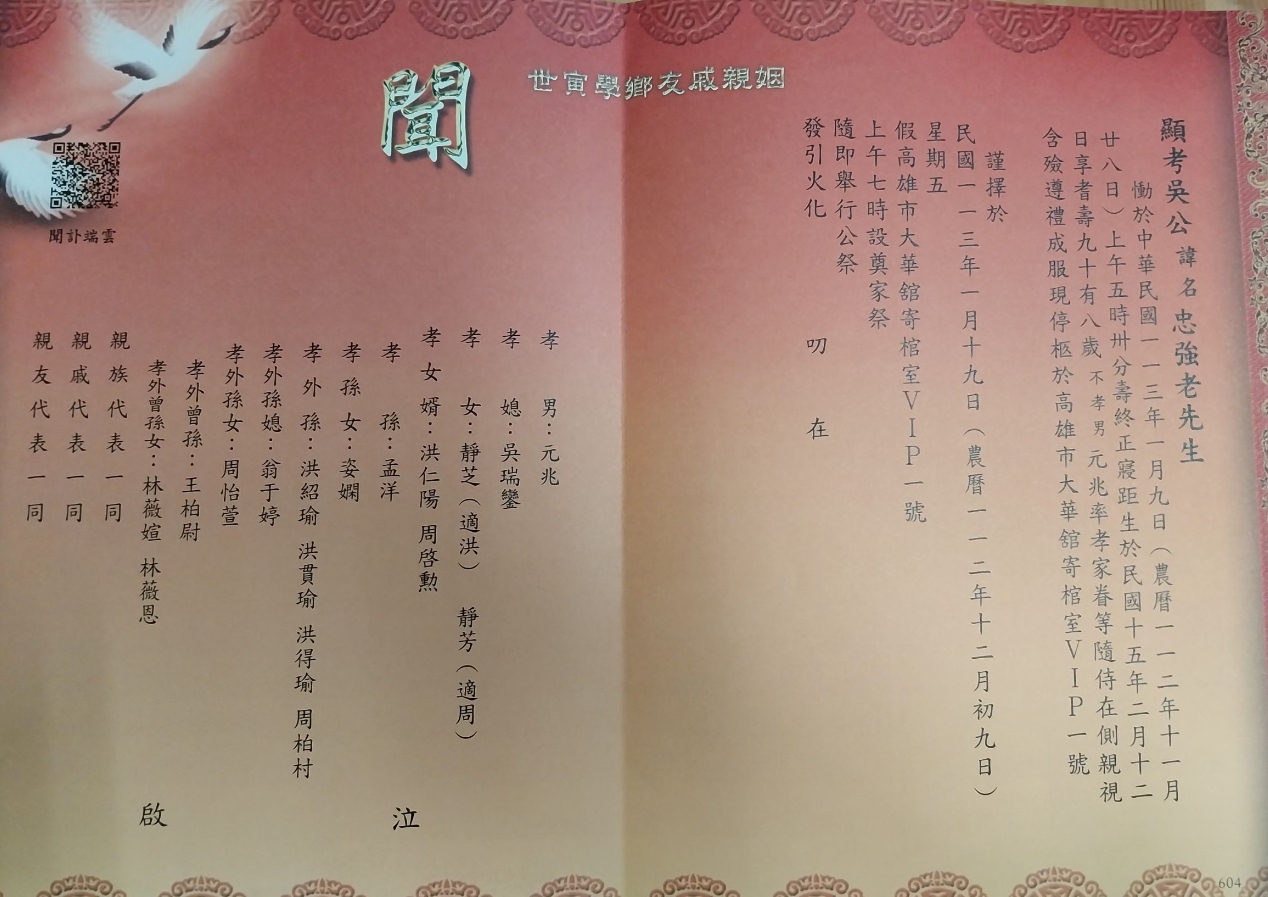 顯考吳公諱名忠強老先生
慟於中華民國一一三年一月九日（農曆一一二年十一月
廿八日）上午五時卅分壽終正寢距生於民國十五年二月十二
日享耆壽九十有八歲不孝男元兆率孝家眷等隨侍在側親視
含殮遵禮成服現停柩於高雄市大華舘寄棺室VIP一號
謹擇於
民國一一三年一月十九日（農曆一一二年十二月初九日）
星期五
假高雄市大華舘寄棺室VIP一號
上午七時設奠家祭
隨即舉行公祭
發引火化
叨在
姻親戚友鄉學寅世
聞
孝男：元兆
孝媳：吳瑞鑾
孝女：靜芝（適洪） 靜芳（適周）
孝女婿：洪仁陽 周啓勲
孝孫：孟洋
孝孫女：姿嫻
孝外孫：洪紹瑜 洪貫瑜 洪得瑜 周柏村
孝外孫媳：翁于婷
孝外孫女：周怡萱
孝外曾孫：王柏尉
孝外曾孫女：林薇媗 林薇恩
親族代表一同
親戚代表一同
親友代表一同
泣
啟
雲端訃聞
604